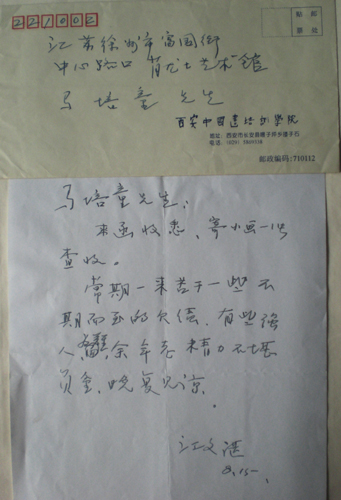 221002
贴邮
票处
江苏徐州市富国街
中心路口 育龙艺术馆
马培童 先生
西安中国画培训学院
地址:西安市长安县
邮政编码:710112
马培童先生:
来函收悉,寄小画一帧
查收。
常期一来苦于一些不
期而至的欠债,有些强
人,余年老精力不堪
负重,晚复见谅。
江文湛
8.15